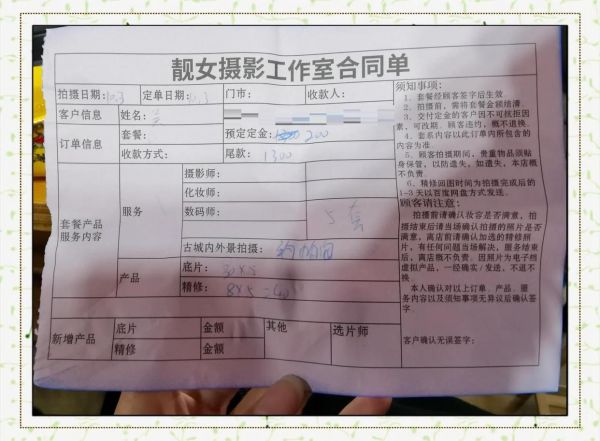 靓女摄影工作室合同单
拍摄日期: 10.3 定单日期: 10.3 门市: 收款人:
客户信息 姓名:
订单信息 套餐: 预定定金: 200
收款方式: 尾款: 1300
套餐产品
服务内容
服务
摄影师:
化妆师:
数码师:
5套
古城内外景拍摄:
产品
底片: 30×5
精修: 8×5=40
新增产品
底片 金额 其他 选片师
精修 金额
须知事项:
1、套餐经顾客签字后生效。
2、拍摄前，需将套餐金额结清。
3、交付定金的客户因不可抗拒因
素，可改期。顾客违约，概不退换。
4、套系内容以此订单内所包含的
内容为准。
5、顾客拍摄期间，贵重物品须贴
身保管，以防遗失，如遗失，本店概
不负责。
6、精修回图时间为拍摄完成后的
1-3天以百度网盘方式发送。
顾客请注意:
拍摄前请确认妆容是否满意，拍
摄结束后请当场确认拍摄的照片是否
满意，离店前请确认加选的精修照
片，有任何问题当场解决，服务结束
后，离店概不负责。因照片为电子档
虚拟产品，一经确实/发送，不退不
换
本人确认对以上订单、产品、服
务内容以及须知事项无异议后确认签
字。
客户确认无误签字: